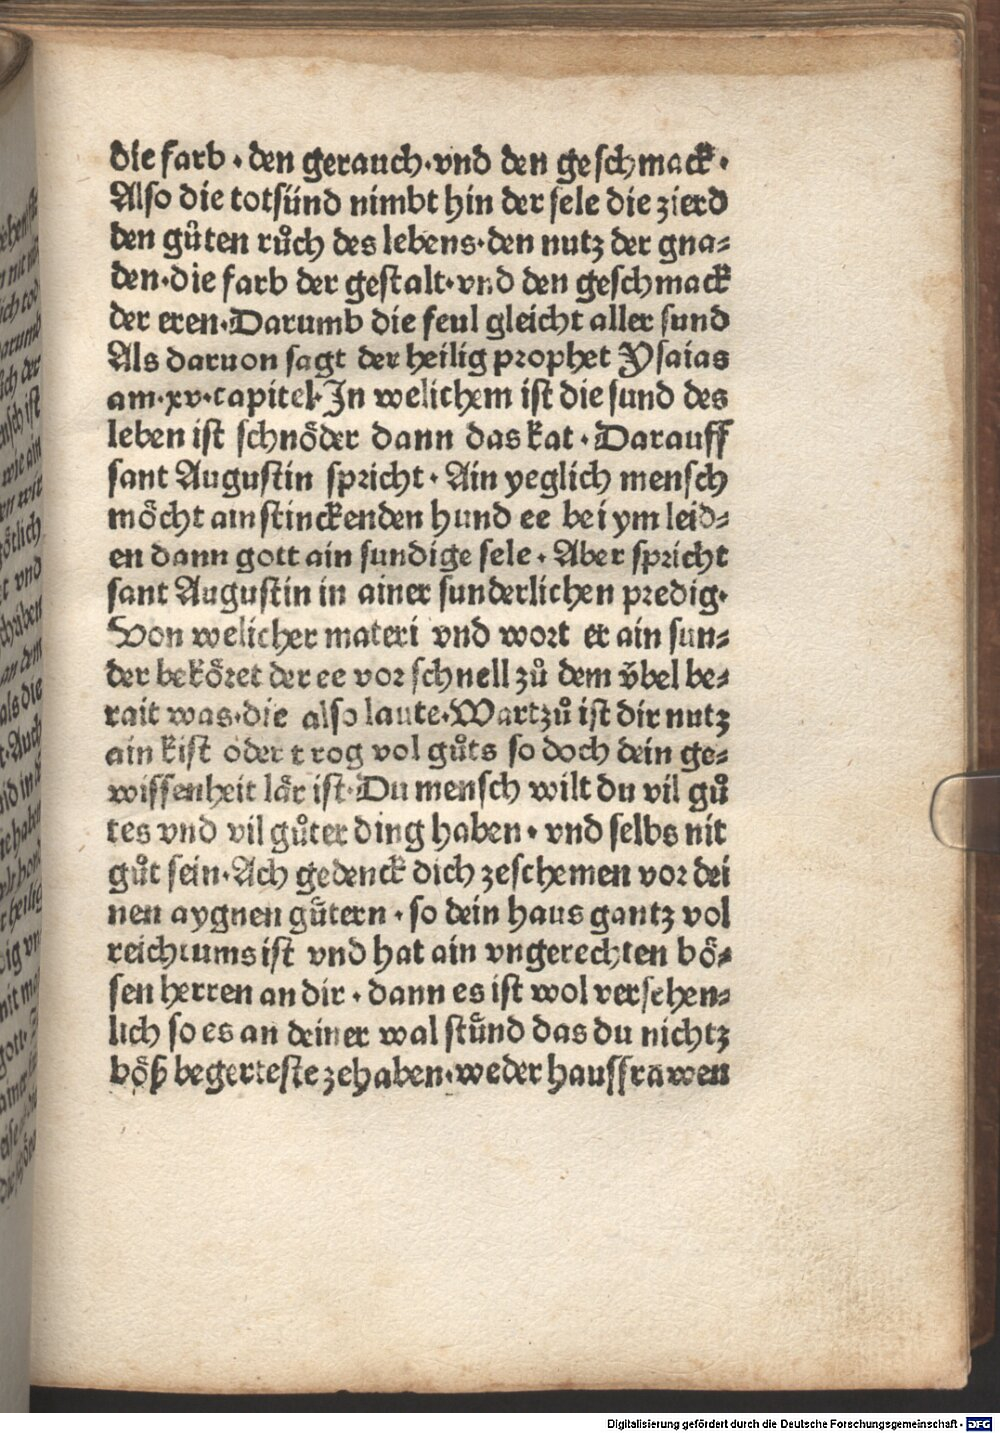 die farb · den gerauch · vnd den geschmack ·
Also die totsünd nimbt hin der sele die zierd
den gůten růch des lebens · den nutz der gna⸗
den · die farb der gestalt · vnd den geschmack
der eren · Darumb die feul gleicht aller sund
Als daruon sagt der heilig prophet Ysaias
am · xv · capitel · In welichem ist die sund des
leben ist schnöder dann das kat · Darauff
sant Augustin spricht · Ain yeglich mensch
möcht ain stinckenden hund ee bei ym leid⸗
en dann gott ain sundige sele · Aber spricht
sant Augustin in ainer sunderlichen predig ·
Von welicher materi vnd wort er ain sun⸗
der beköret der ee vor schnell zů dem v̈bel be⸗
rait was · die also laute · Wartzů ist dir nutz
ain kist oder trog vol gůts so doch dein ge⸗
wissenheit lär ist · Du mensch wilt du vil gů
tes vnd vil gůter ding haben · vnd selbs nit
gůt sein · Ach gedenck dich zeschemen vor dei
nen aygnen gütern · so dein haus gantz vol
reichtums ist vnd hat ain vngerechten bö⸗
sen herren an dir · dann es ist wol versehen⸗
lich so es an deiner wal stünd das du nichtz
böß begerteste zehaben · weder haussfrawen
Digitalisierung gefördert durch die Deutsche Forschungsgemeinschaft - DFG